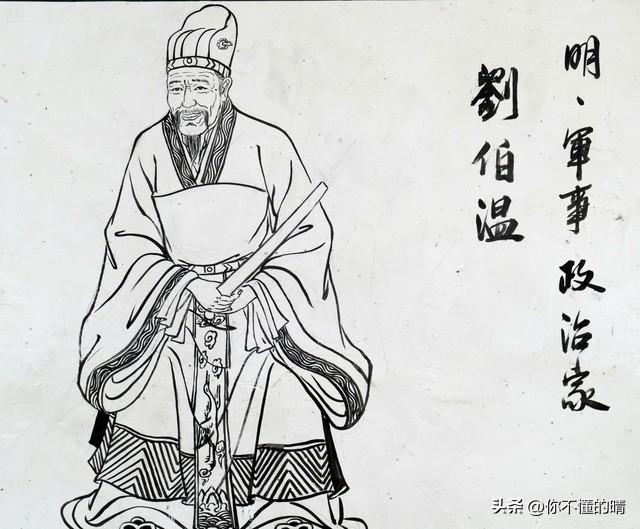 明、軍事政治家
劉伯温
头条 @你不懂的晴